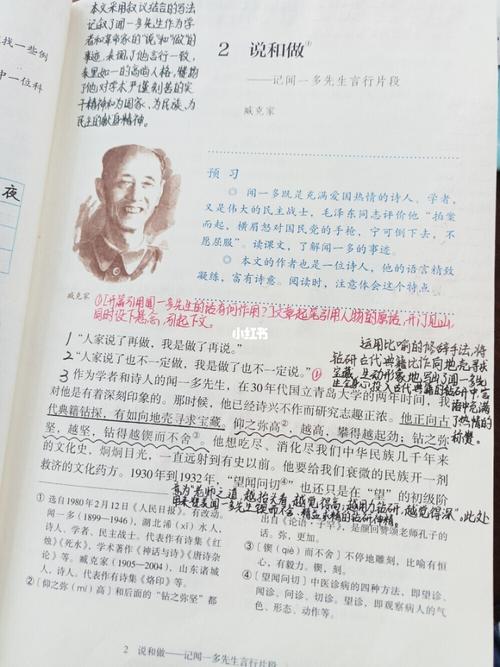 本文采用叙议结合的写法
记叙了闻一多先生作为学
者和革命家的“说”和“做”的
事迹，表现了他言行一致，
表里如一的高尚人格，赞扬
了他对学术严谨刻苦的实
干精神和为国家、为民族、为
民主的献身精神。
找一些例
中一位科
夜
2 说和做①
——记闻一多先生言行片段
臧克家
预 习
◎ 闻一多既是充满爱国热情的诗人、学者，
又是伟大的民主战士，毛泽东同志评价他“拍案
而起，横眉怒对国民党的手枪，宁可倒下去，不
愿屈服”。读课文，了解闻一多的事迹。
◎ 本文的作者也是一位诗人，他的语言精致
凝练，富有诗意。阅读时，注意体会这个特点。
臧克家
①开篇引用闻一多先生的话有何作用？文章起笔引用人物的原话，开门见山，
同时设下悬念，引起下文。
小红书
1 “人家说了再做，我是做了再说。”
2 “人家说了也不一定做，我是做了也不一定说。”①
运用比喻的修辞手法，将
钻研古代典籍比作向地壳寻求
宝藏，生动形象地写出了闻一多先
生全身心投入古代典籍的钻研中，
3 作为学者和诗人的闻一多先生，在30年代国立青岛大学的两年时间，我
对他是有着深刻印象的。那时候，他已经诗兴不作而研究志趣正浓。他正向古
代典籍钻探，有如向地壳寻求宝藏。仰之弥高②，越高，攀得越起劲；钻之弥
坚，越坚，钻得越锲而不舍③。他想吃尽、消化尽我们中华民族几千年来
的文化史，炯炯目光，一直远射到有史以前。他要给我们衰微的民族开一剂
救济的文化药方。1930年到1932年，“望闻问切④”也还只是在“望”的初级阶
① 选自1980年2月12日《人民日报》。
一多（1899—1946），湖北浠（xī）水人，
诗人、学者、民主战士。代表作有诗集《红
烛》《死水》，学术著作《神话与诗》《唐诗杂
论》等。臧克家（1905—2004），山东诸城
人，诗人。代表作有诗集《烙印》等。
②〔仰之弥（mí）高〕和后面的“钻之弥坚”都
出自《论语·子罕》，是颜回赞颂老师孔子的
话。弥，更加。
③〔锲（qiè）而不舍〕不停地雕刻，比喻有恒
心，有毅力。锲，刻。
④〔望闻问切〕中医诊病的四种方法，即望诊、
闻诊、问诊、切诊。望诊，即观察病人的气
色、形态、动作等。
2 说和做——记闻一多先生言行片段